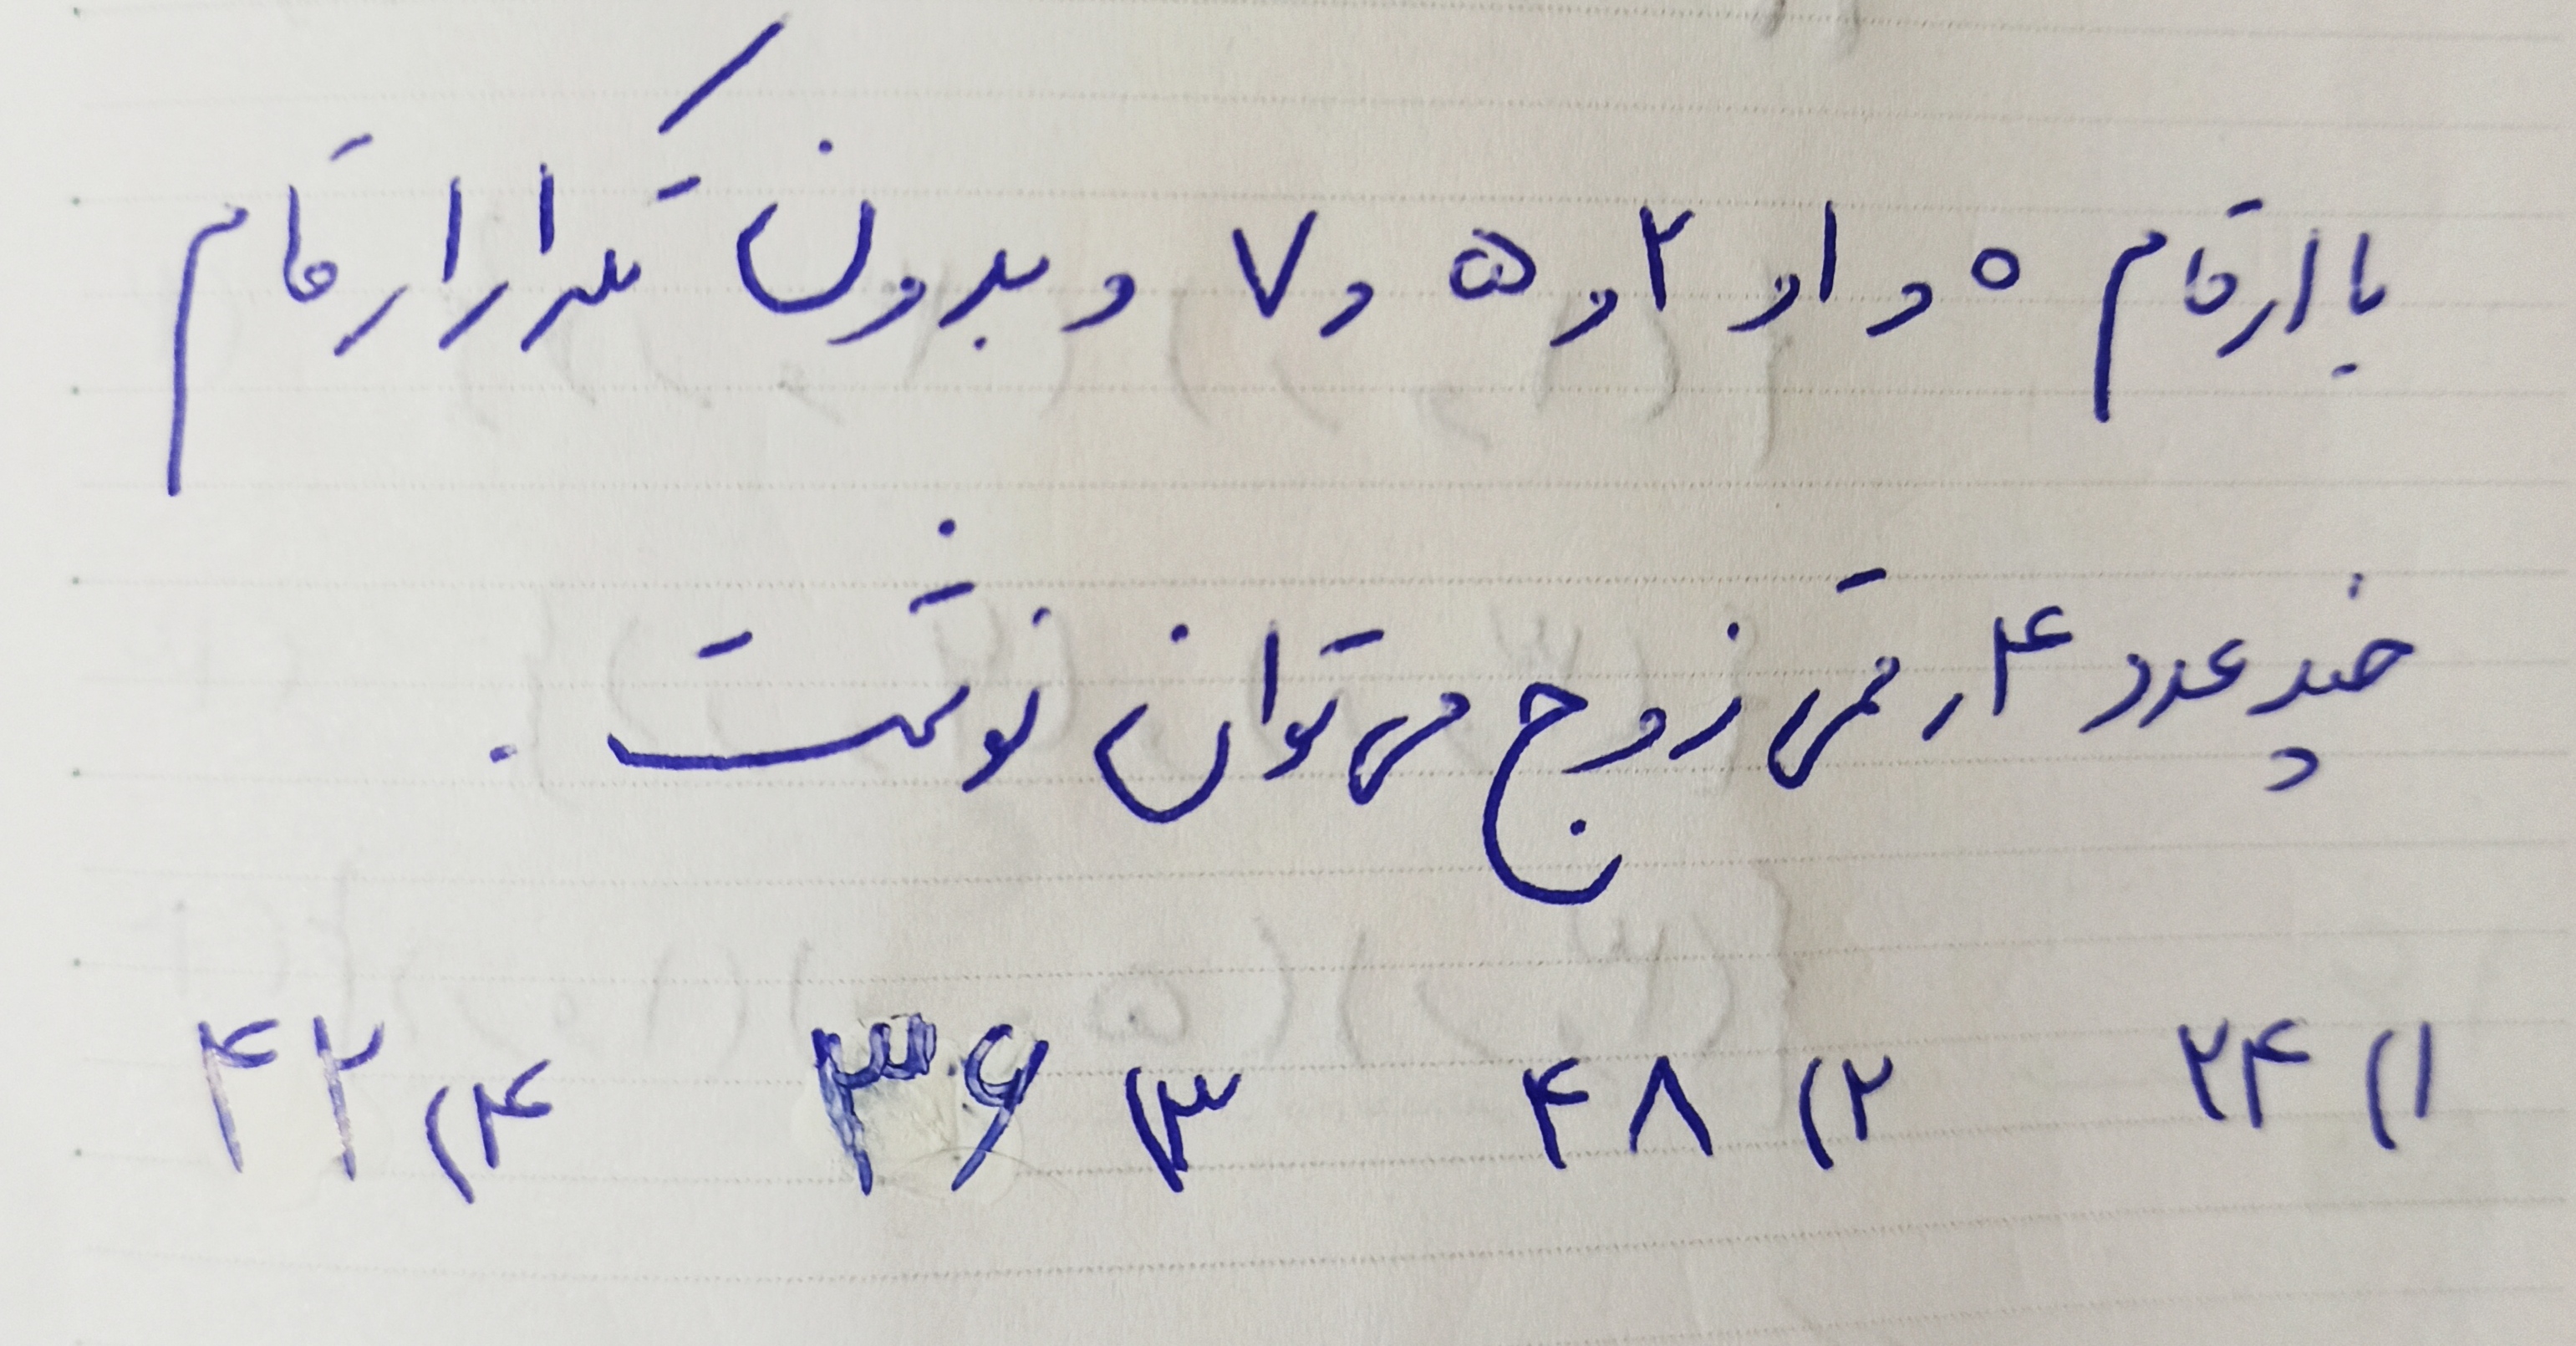 با ارقام ۰ و ۱ و ۲ و ۵ و ۷ و بدون تکرار ارقام
چند عدد ۴ رقمی زوج می توان نوشت .
۱) ۲۴ ۲) ۴۸ ۳) ۳۶ ۴) ۴۲